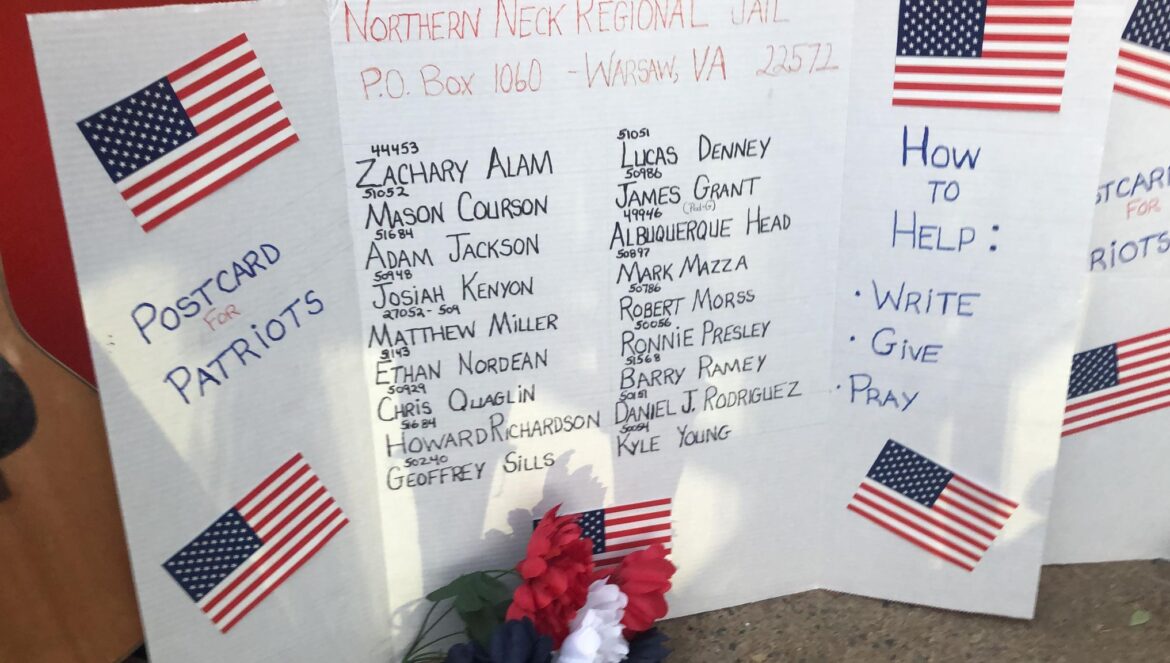 NORTHERN NECK REGIONAL JAIL
P.O. BOX 1060 - WARSAW, VA 22572
POSTCARD
FOR
PATRIOTS
44453
ZACHARY ALAM
51052
MASON COURSON
51684
ADAM JACKSON
50948
JOSIAH KENYON
27052-509
MATTHEW MILLER
51143
ETHAN NORDEAN
50929
CHRIS QUAGLIN
51684
HOWARD RICHARDSON
50240
GEOFFREY SILLS
51051
LUCAS DENNEY
50986
JAMES GRANT
49946
ALBUQUERQUE HEAD
50897
MARK MAZZA
50786
ROBERT MORSS
50056
RONNIE PRESLEY
51568
BARRY RAMEY
50151
DANIEL J. RODRIGUEZ
50054
KYLE YOUNG
HOW
TO
HELP:
· WRITE
· GIVE
· PRAY
STCAR
FOR
RIOTS